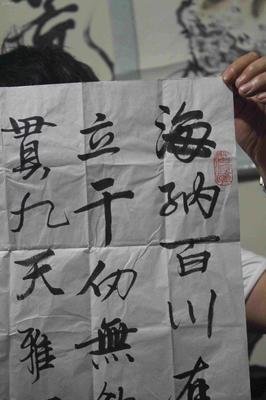 海納百川有
立千仞無
貫九天雅